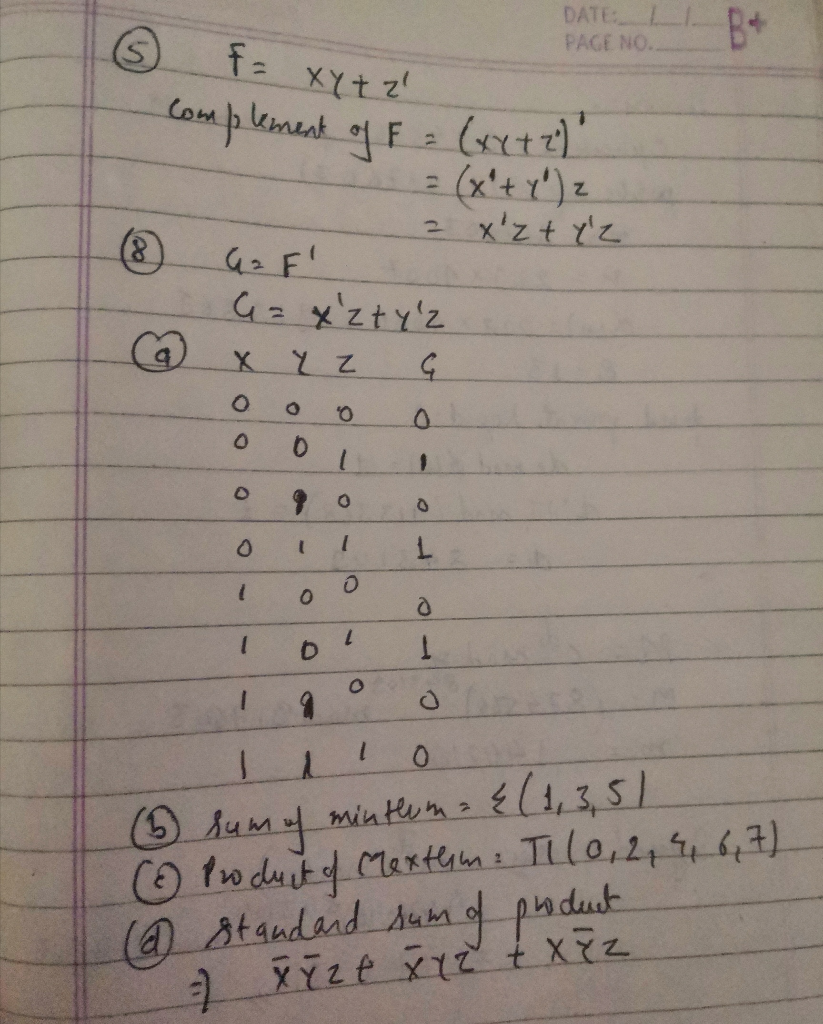 DATE: / / B+
PAGE NO.
(5) F = XY + Z'
Complement of F = (XY + Z')'
= (X' + Y') Z
= X'Z + Y'Z
(8) G = F'
G = X'Z + Y'Z
(a) X Y Z G
0 0 0 0
0 0 1 1
0 1 0 0
0 1 1 1
1 0 0 0
1 0 1 1
1 1 0 0
1 1 1 0
(b) Sum of minterm = Σ(1, 3, 5)
(c) Product of Maxterm = Π(0, 2, 4, 6, 7)
(d) standard sum of product
=> X̄ȲZ + X̄YZ + XȲZ